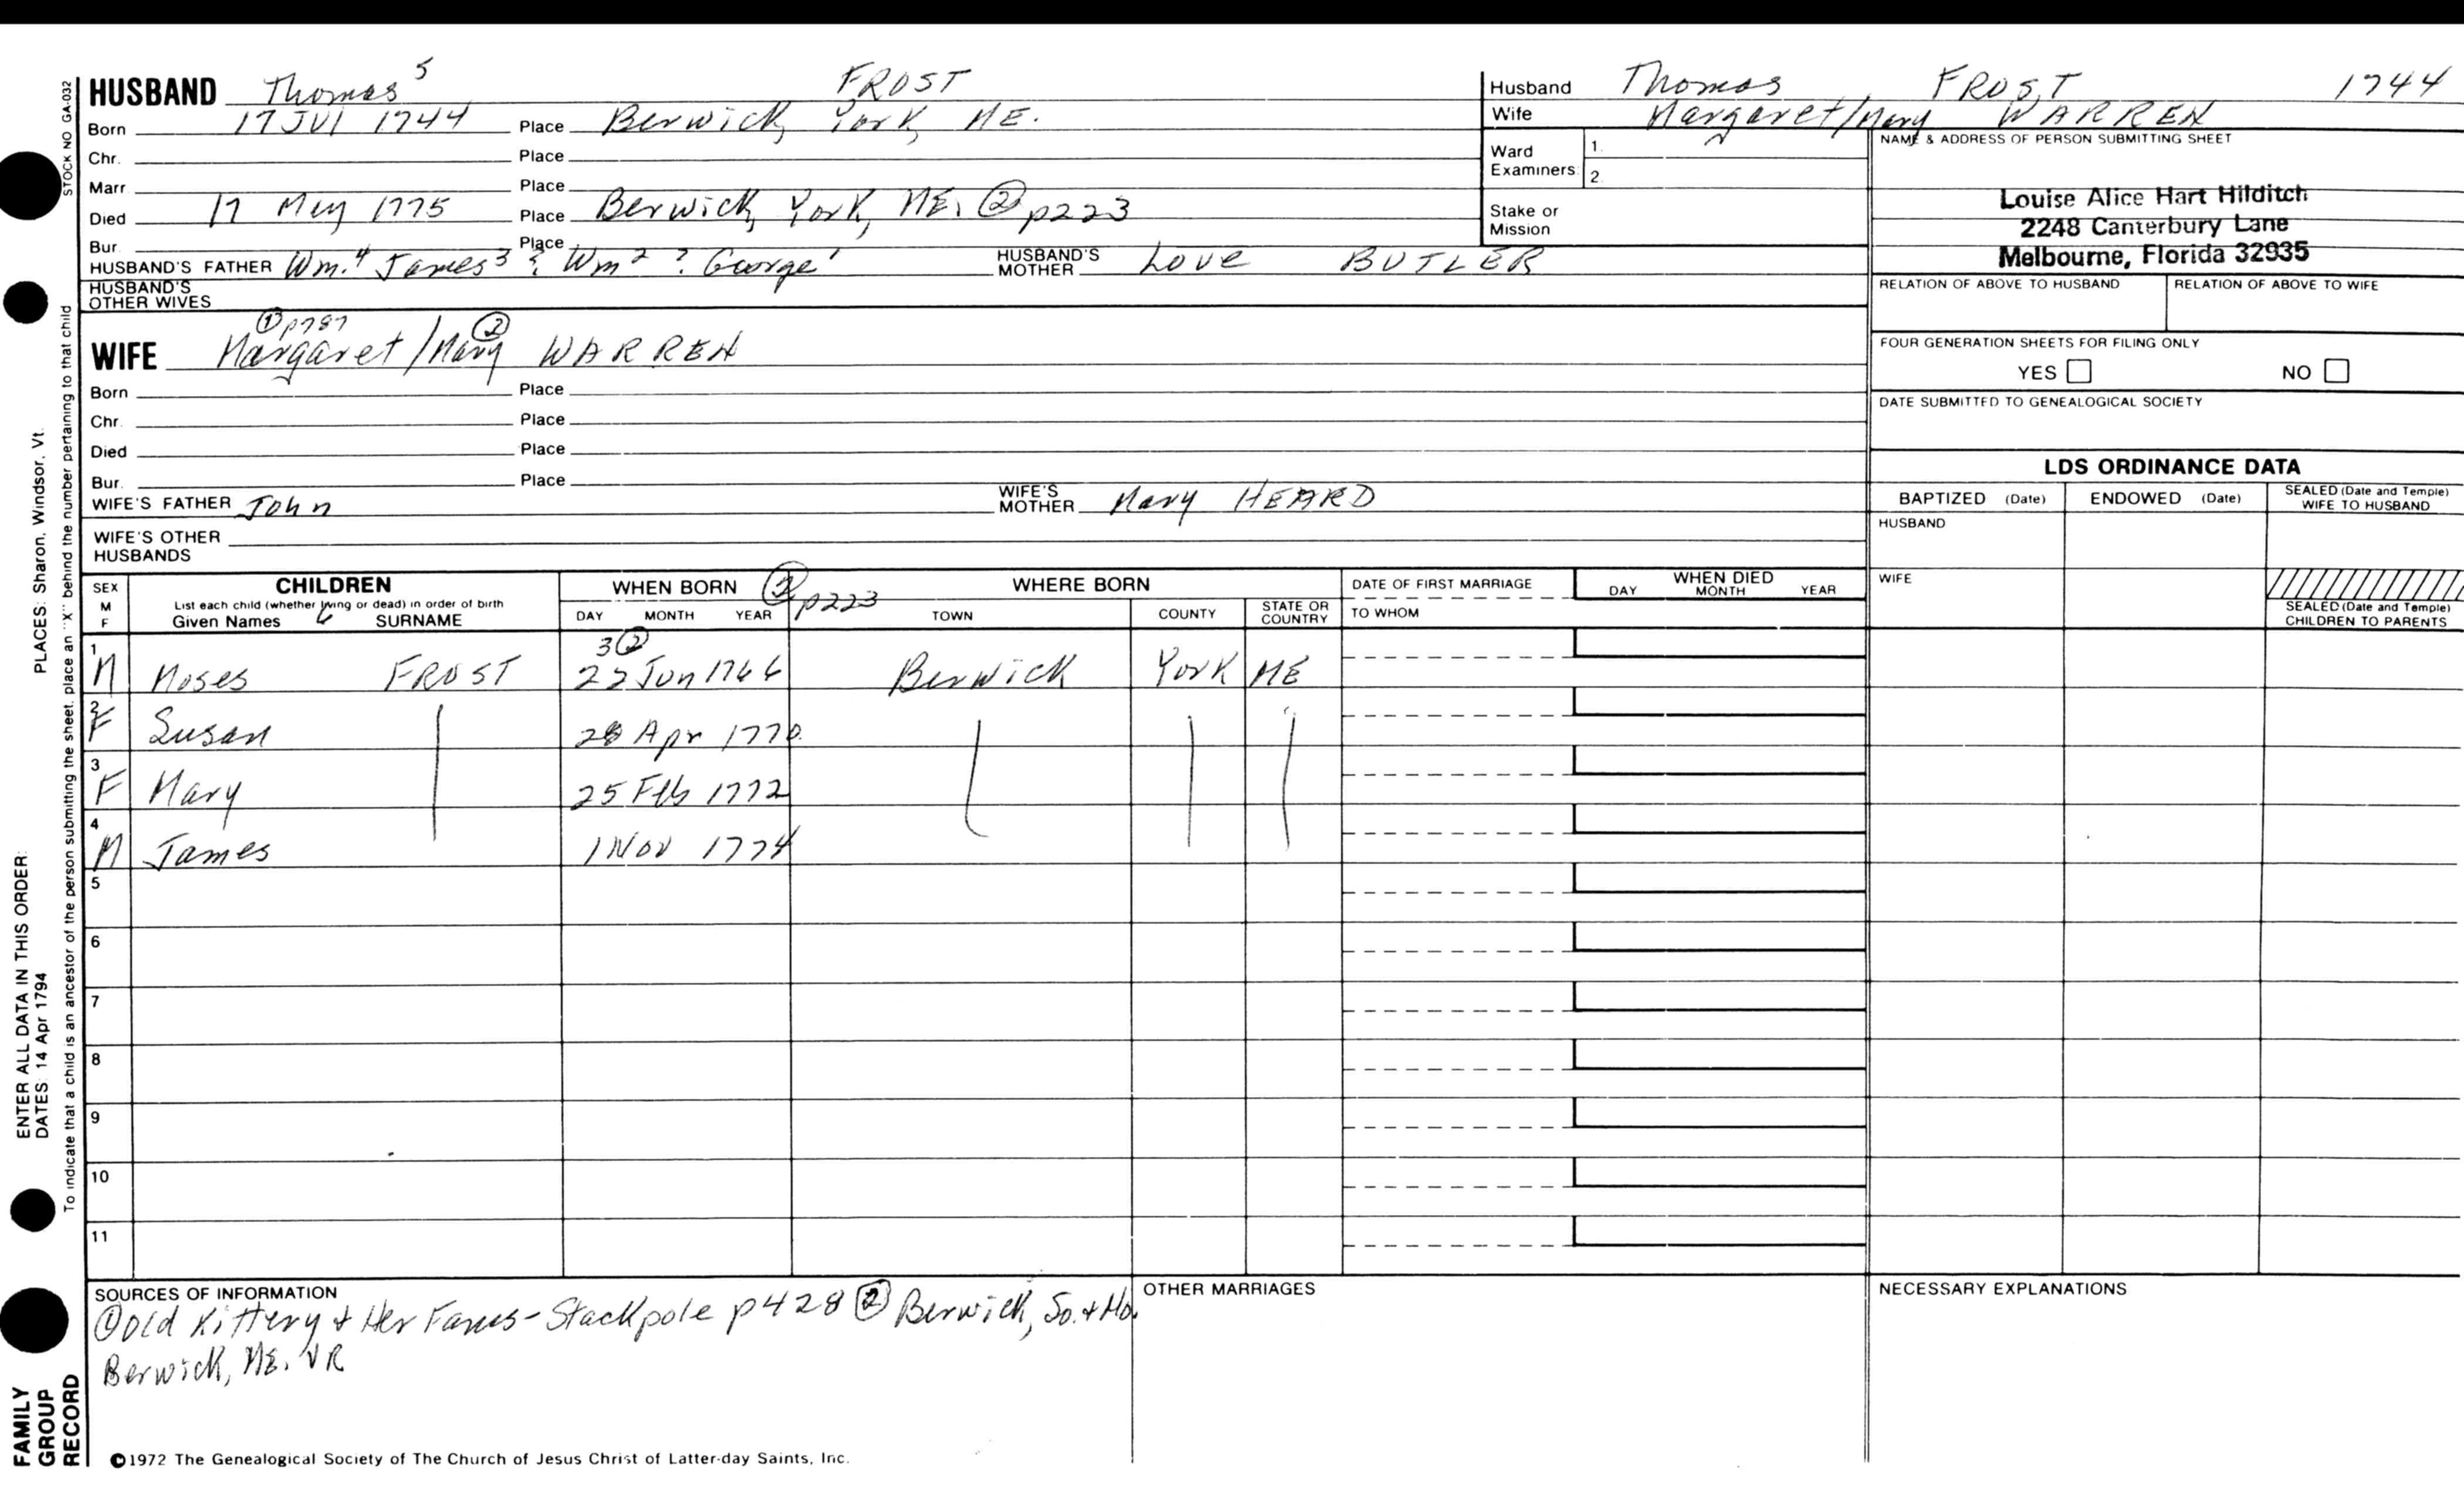 HUSBAND Thomas 5 FROST
Born 17 Jul 1744 Place Berwick, York, ME.
Chr. Place
Marr. Place
Died 17 May 1775 Place Berwick, York, ME. ② p223
Bur. Place
HUSBAND'S FATHER Wm.4 James3 ? Wm2 ? George1 HUSBAND'S MOTHER Love BUTLER
HUSBAND'S OTHER WIVES
① p787 ②
WIFE Margaret/Mary WARREN
Born Place
Chr. Place
Died Place
Bur. Place
WIFE'S FATHER John WIFE'S MOTHER Mary HEARD
WIFE'S OTHER HUSBANDS
Husband Thomas FROST 1744
Wife Margaret/Mary WARREN
Ward Examiners: 1. 2.
Stake or Mission
NAME & ADDRESS OF PERSON SUBMITTING SHEET
Louise Alice Hart Hilditch
2248 Canterbury Lane
Melbourne, Florida 32935
RELATION OF ABOVE TO HUSBAND RELATION OF ABOVE TO WIFE
FOUR GENERATION SHEETS FOR FILING ONLY
YES NO
DATE SUBMITTED TO GENEALOGICAL SOCIETY
LDS ORDINANCE DATA
BAPTIZED (Date) ENDOWED (Date) SEALED (Date and Temple) WIFE TO HUSBAND
HUSBAND
WIFE
SEALED (Date and Temple) CHILDREN TO PARENTS
SEX M F CHILDREN WHEN BORN ② p223 WHERE BORN DATE OF FIRST MARRIAGE WHEN DIED
List each child (whether living or dead) in order of birth
Given Names SURNAME DAY MONTH YEAR TOWN COUNTY STATE OR COUNTRY TO WHOM DAY MONTH YEAR
3②
1 M Moses FROST 22 Jun 1766 Berwick York ME
2 F Susan 28 Apr 1770
3 F Mary 25 Feb 1772
4 M James 1 Nov 1774
5
6
7
8
9
10
11
SOURCES OF INFORMATION
① Old Kittery & Her Fams - Stackpole p428 ② Berwick, So. & No.
Berwick, ME. VR
OTHER MARRIAGES
NECESSARY EXPLANATIONS
©1972 The Genealogical Society of The Church of Jesus Christ of Latter-day Saints, Inc.
STOCK NO GA-032
To indicate that a child is an ancestor of the person submitting the sheet, place an "X" behind the number pertaining to that child
ENTER ALL DATA IN THIS ORDER:
DATES: 14 Apr 1794
PLACES: Sharon, Windsor, Vt.
FAMILY
GROUP
RECORD